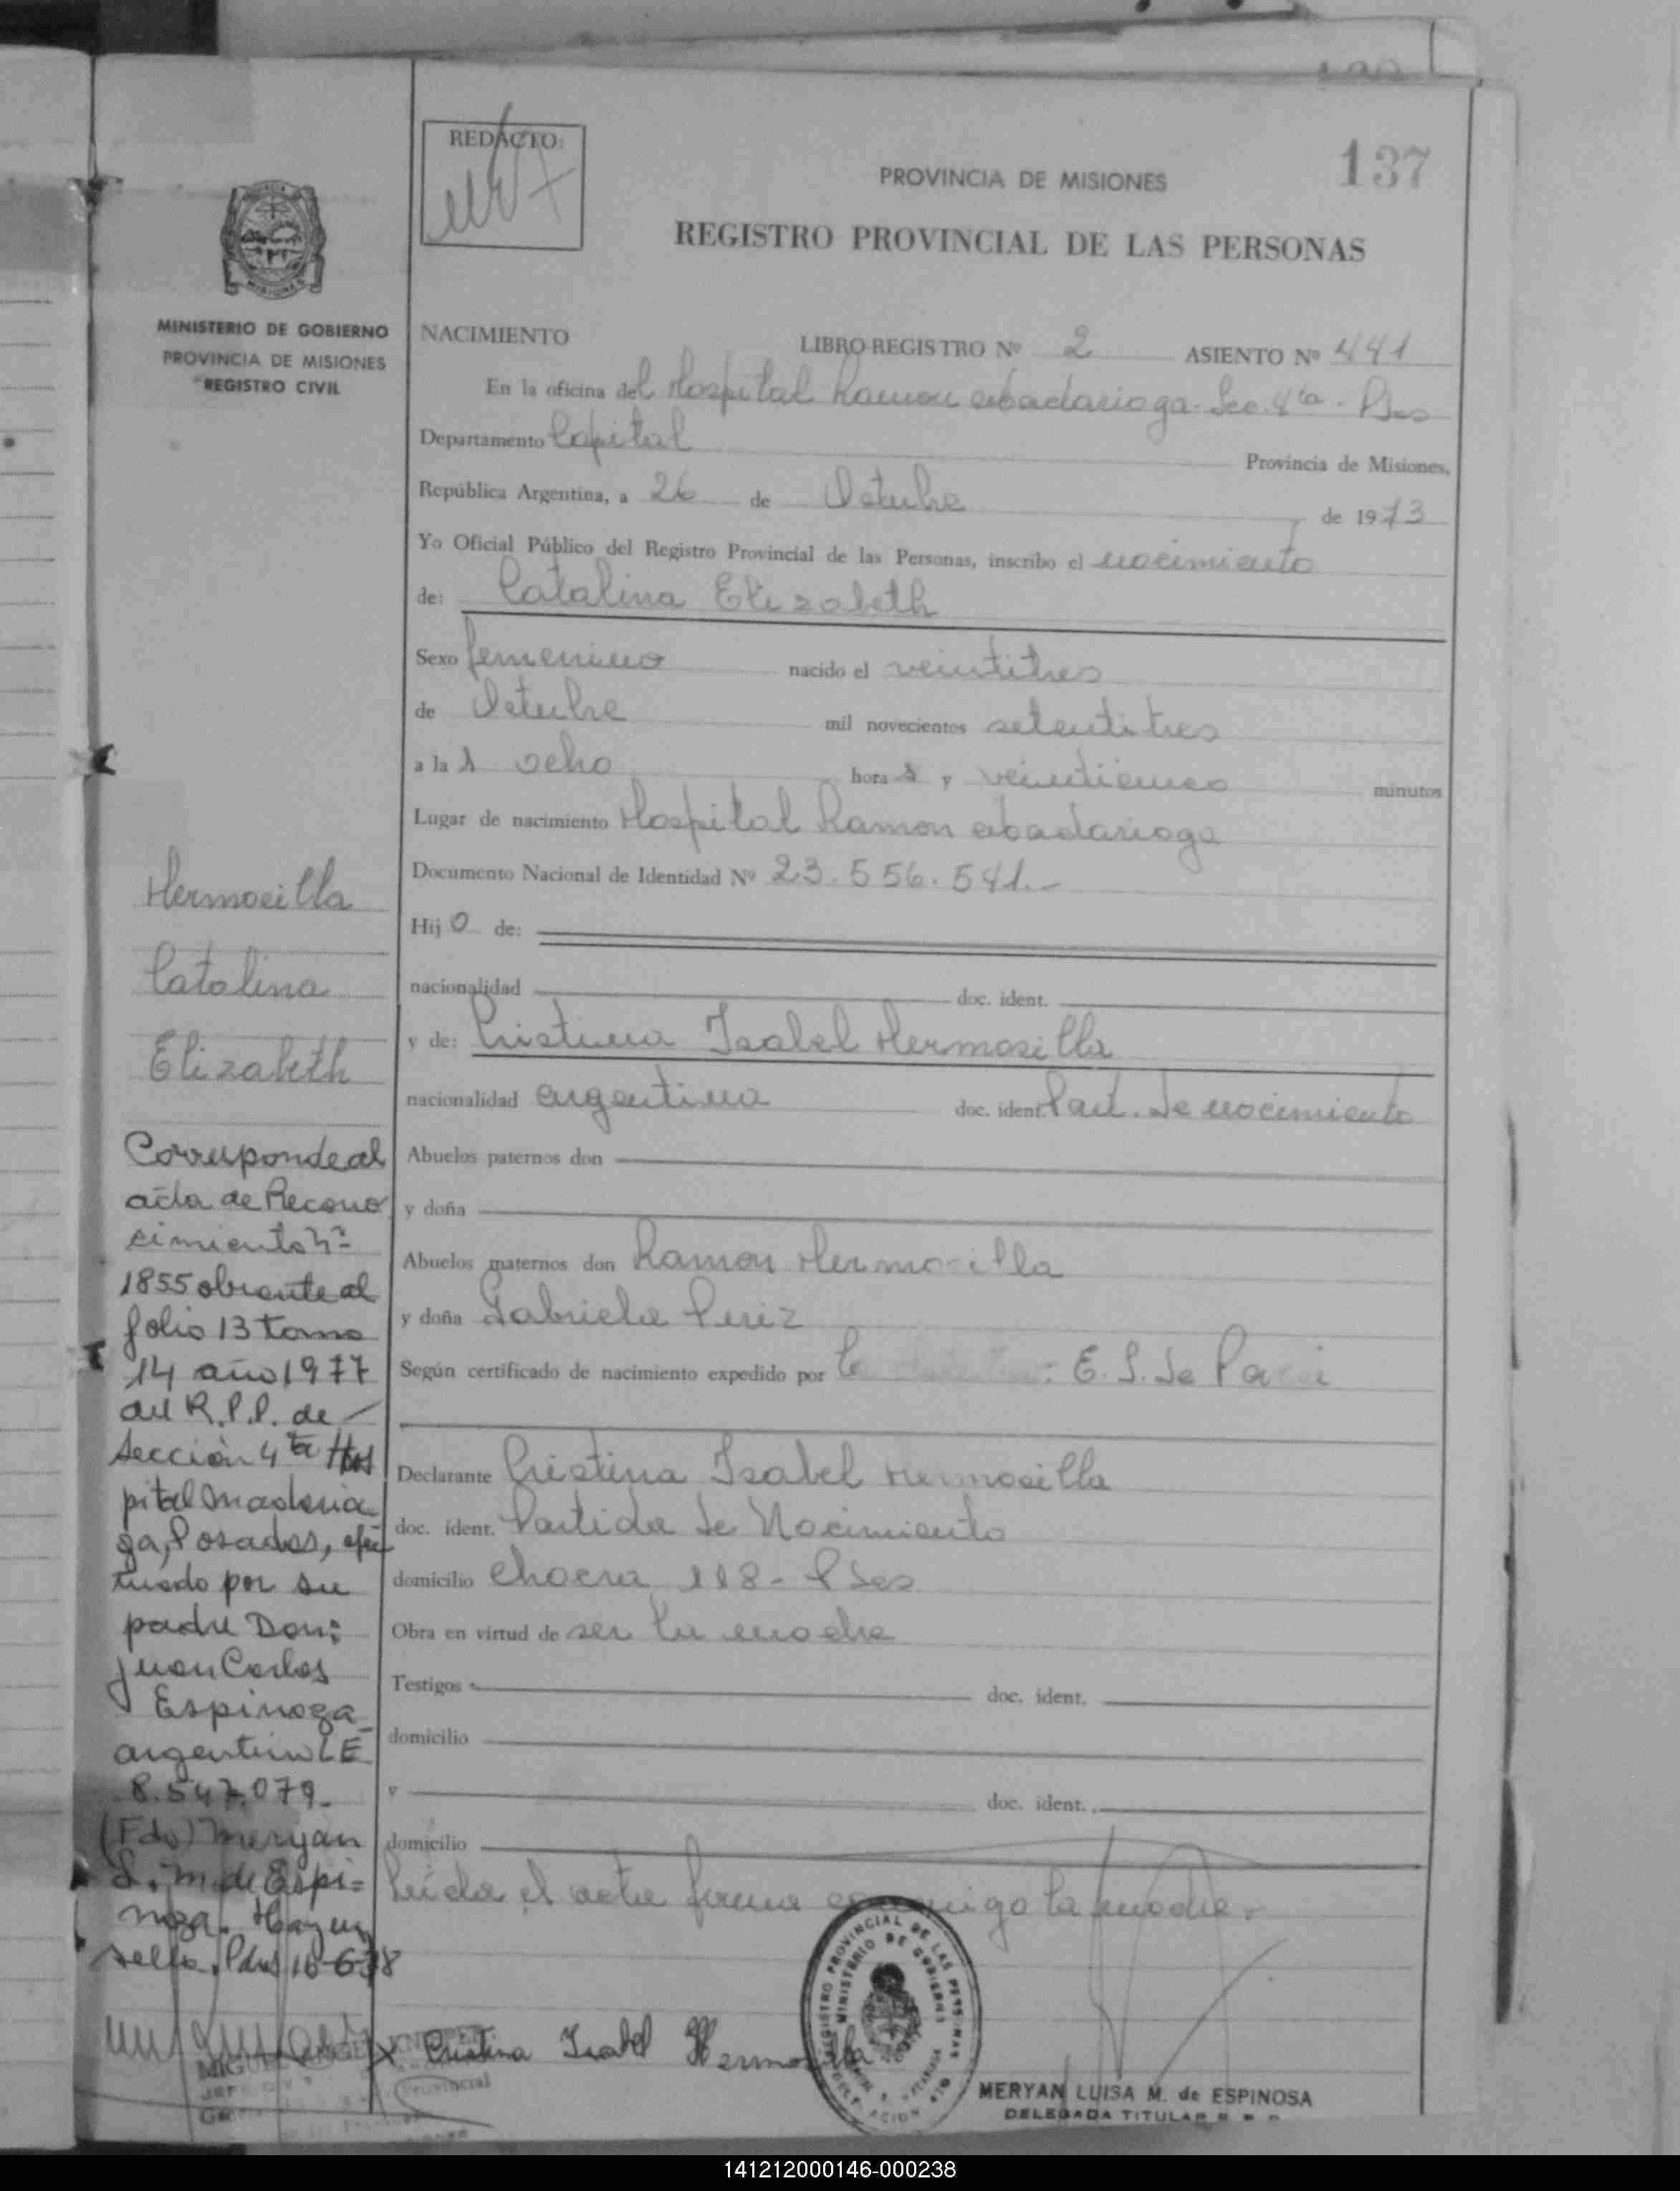 137
REDACTO:
PROVINCIA DE MISIONES
REGISTRO PROVINCIAL DE LAS PERSONAS
MINISTERIO DE GOBIERNO
PROVINCIA DE MISIONES
REGISTRO CIVIL
NACIMIENTO LIBRO-REGISTRO Nº 2 ASIENTO Nº 441
En la oficina del Hospital Ramon Madariaga. Sec. 4ta - Pdas
Departamento Capital Provincia de Misiones,
República Argentina, a 26 de Octubre de 1973
Yo Oficial Público del Registro Provincial de las Personas, inscribo el nacimiento
de: Catalina Elizabeth
Sexo femenino nacido el veintitres
de Octubre mil novecientos setentitres
a la s ocho hora s y veinticinco minutos
Lugar de nacimiento Hospital Ramon Madariaga
Documento Nacional de Identidad Nº 23.556.541.-
Hij o de:
nacionalidad doc. ident.
y de: Cristina Isabel Hermosilla
nacionalidad argentina doc. ident. Part. de nacimiento
Abuelos paternos don
y doña
Abuelos maternos don Ramon Hermosilla
y doña Gabriela Periz
Según certificado de nacimiento expedido por E. S. de
Declarante Cristina Isabel Hermosilla
doc. ident. Partida de Nacimiento
domicilio Chacra 118 - Pdas
Obra en virtud de ser la madre
Testigos doc. ident.
domicilio
y doc. ident.
domicilio
Leída el acta firma conmigo la madre.-
Cristina Isabel Hermosilla
MERYAN LUISA M. de ESPINOSA
DELEGADA TITULAR R. P. P.
REGISTRO PROVINCIAL DE LAS PERSONAS
MINISTERIO DE GOBIERNO
Hermosilla
Catalina
Elizabeth
Corresponde al
acta de Recono
cimiento nº
1855 obrante al
folio 13 tomo
14 año 1977
del R.P.P. de
Sección 4ta Hos
pital Madaria
ga, Posadas, efec
tuado por su
padre Don:
Juan Carlos
Espinoza
argentino L E
8.547.079.-
(Fdo) Meryan
L. M. de Espi=
noza. Hay un
sello. Pdas 16-6-78
MIGUEL ANGEL
Provincial
141212000146-000238